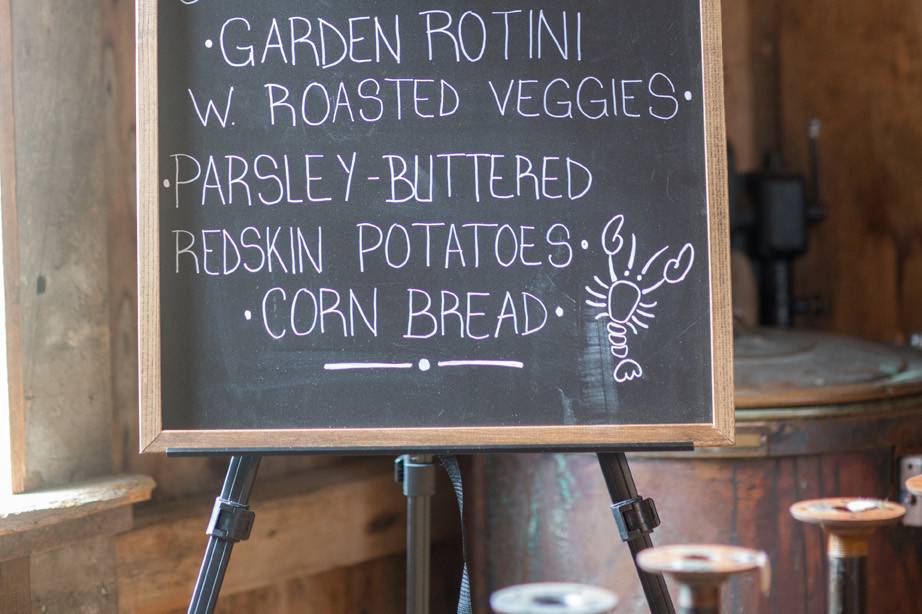 •GARDEN ROTINI
W. ROASTED VEGGIES•
•PARSLEY-BUTTERED
REDSKIN POTATOES•
•CORN BREAD•